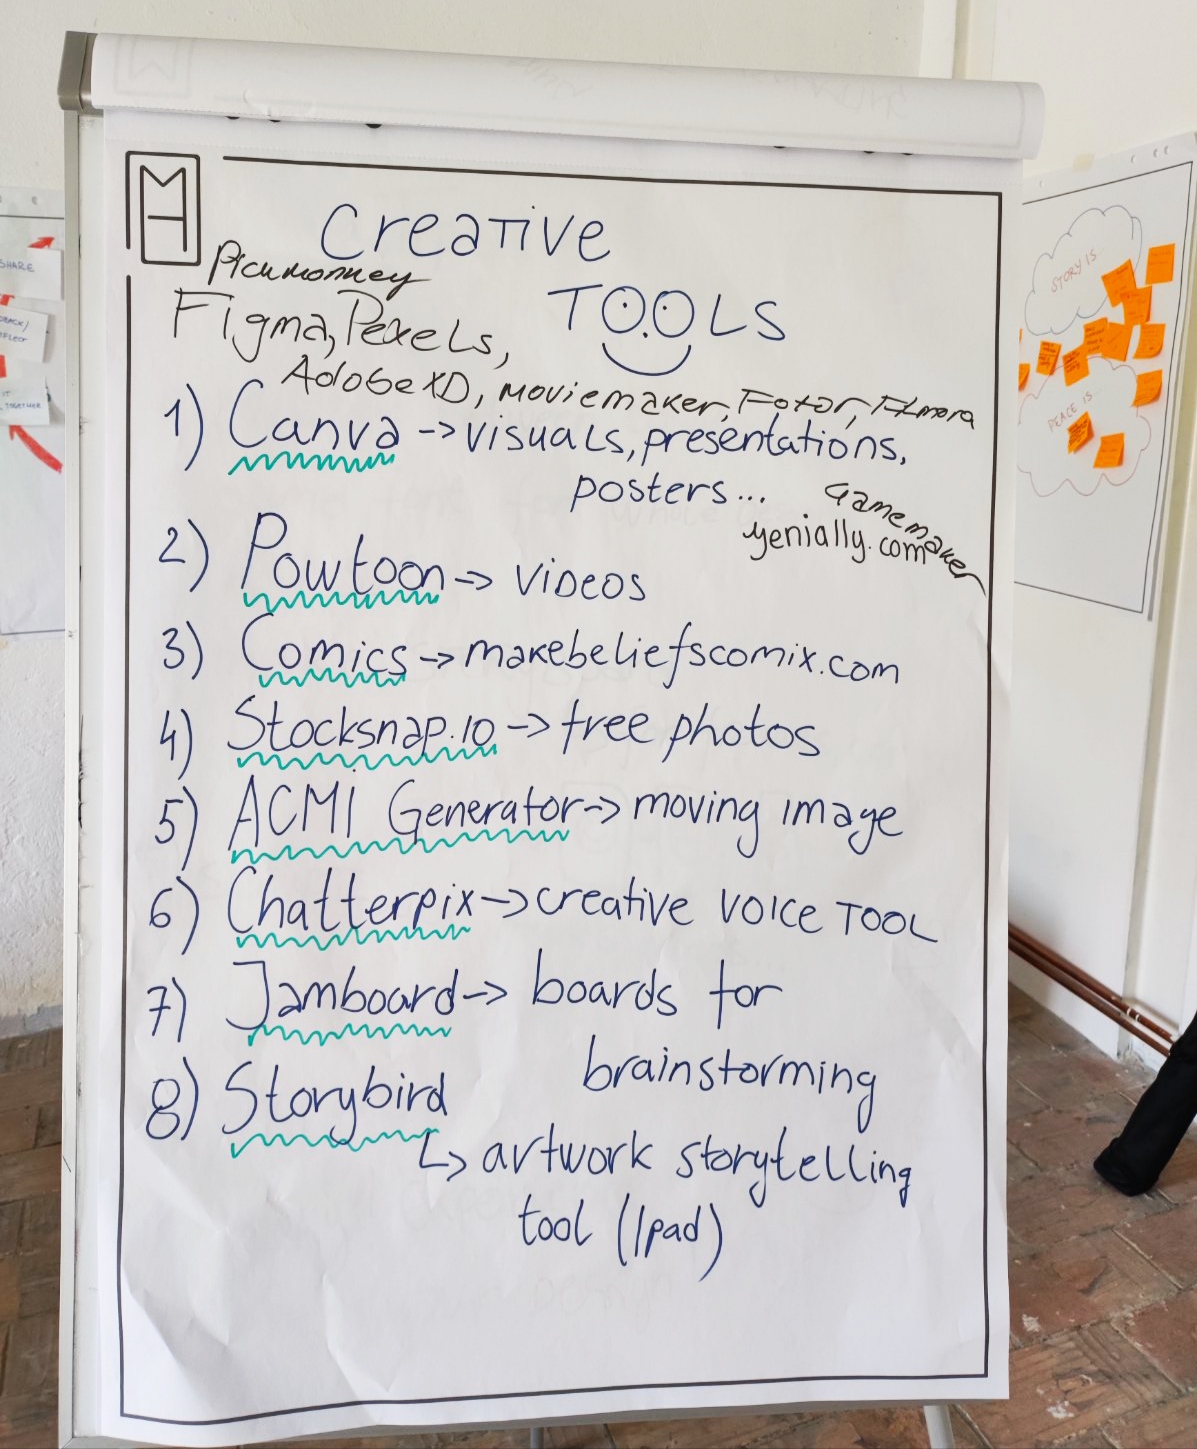 Creative
TOOLS
Picmonkey
Figma, Pexels,
Adobe XD, moviemaker, Fotor, Filmora
1) Canva -> visuals, presentations,
posters...
Gamemaker
genially.com
2) Powtoon -> videos
3) Comics -> makebeliefscomix.com
4) Stocksnap.io -> free photos
5) ACMI Generator -> moving image
6) Chatterpix -> creative voice TOOL
7) Jamboard -> boards for
brainstorming
8) Storybird
↳ artwork storytelling
tool (Ipad)
SHARE
TOGETHER
STORY IS
PEACE IS